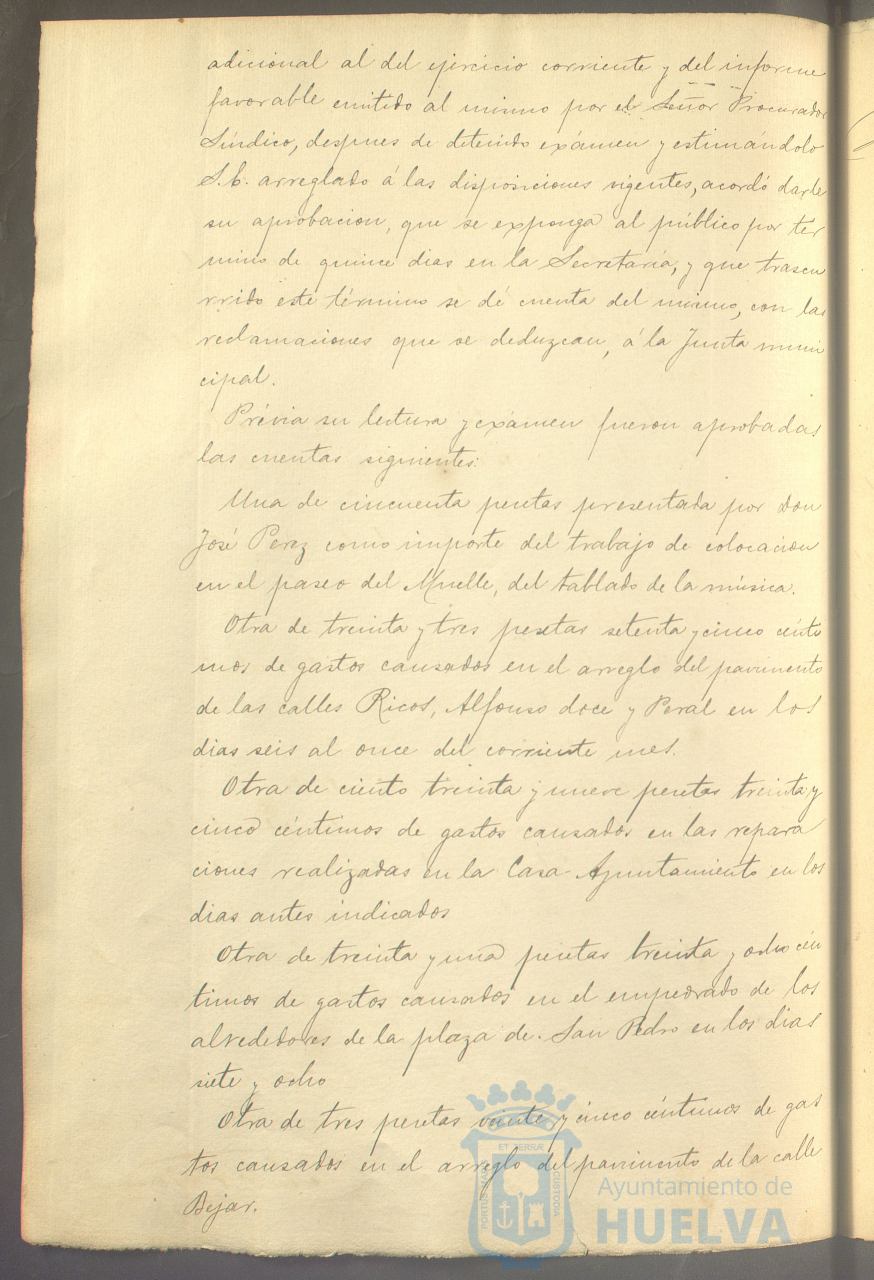 adicional al del ejercicio corriente y del informe
favorable emitido al mismo por el Señor Procurador
Síndico, despues de detenido exámen y estimándolo
S.E. arreglado á las disposiciones vigentes, acordó darle
su aprobacion, que se exponga al público por ter
mino de quince dias en la Secretaría, y que trascu
rrido este término se dé cuenta del mismo, con las
reclamaciones que se deduzcan, á la Junta muni
cipal.
Prévia su lectura y exámen fueron aprobadas
las cuentas siguientes:
Una de cincuenta pesetas presentada por Don
José Perez como importe del trabajo de colocacion
en el paseo del Muelle, del tablado de la música.
Otra de treinta y tres pesetas setenta y cinco cénti
mos de gastos causados en el arreglo del pavimento
de las calles Ricos, Alfonso doce y Peral en los
dias seis al once del corriente mes.
Otra de ciento treinta y nueve pesetas treinta y
cinco céntimos de gastos causados en las repara
ciones realizadas en la Casa Ayuntamiento en los
dias antes indicados
Otra de treinta y una pesetas treinta y ocho cén
timos de gastos causados en el empedrado de los
alrededores de la plaza de San Pedro en los dias
siete y ocho
Otra de tres pesetas veinte y cinco céntimos de gas
tos causados en el arreglo del pavimento de la calle
Bejar.
PORTUS MARIS
ET TERRÆ
CUSTODIA
Ayuntamiento de
HUELVA